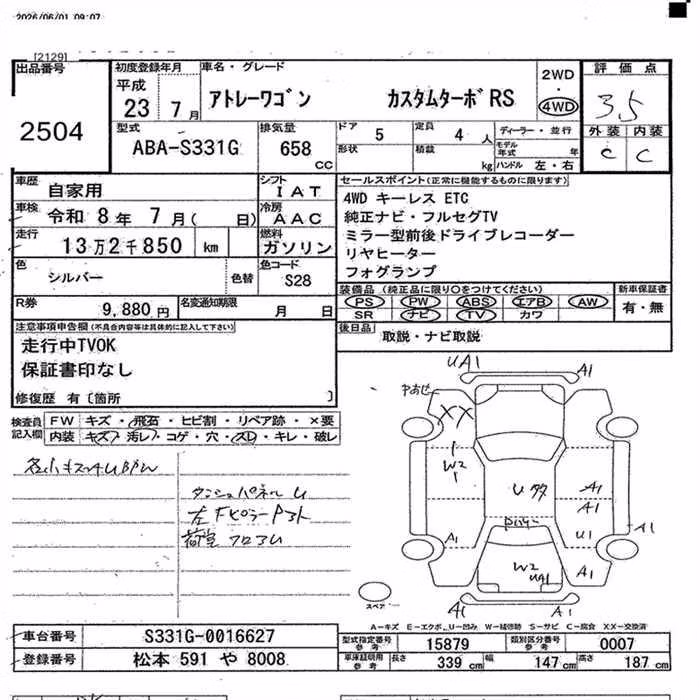 2026/06/01 09:07
[2129]
出品番号
2504
初度登録年月
平成
23 7月
車名・グレード
アトレーワゴン カスタムターボRS
2WD
・
4WD
評価点
3.5
型式
ABA-S331G
排気量
658
CC
ドア 5
形状
定員 4 人
積載 kg
ディーラー・並行
モデル年式 年
ハンドル 左・右
外装 内装
C C
車歴
自家用
シフト
IAT
車検
令和 8年 7月( 日)
冷房
AAC
走行
13万2千850 km
燃料
ガソリン
色
シルバー
色替
色コード
S28
セールスポイント(正常に機能するものに限ります)
4WD キーレス ETC
純正ナビ・フルセグTV
ミラー型前後ドライブレコーダー
リヤヒーター
フォグランプ
装備品(純正品に限り○をつけてください)
PS PW ABS エアB AW
SR ナビ TV カワ
新車保証書
有・無
R券
9,880円
名変通知期限
月 日
後日品
取説・ナビ取説
注意事項申告欄(不具合内容等は具体的に記入して下さい)
走行中TVOK
保証書印なし
修復歴 有〔箇所 〕
検査員
記入欄
FW キズ・飛石・ヒビ割・リペア跡・×要
内装 キズ・汚レ・コゲ・穴・スレ・キレ・破レ
ダッシュパネル U
左Fピラー
荷室フロアU
UA1
A1
XX
W2
U多
A1
A1
A1
A1
U1
W2
UA1
A1
A1
A1
スペア
A−キズ E−エクボ U−凹み W−補修跡 S−サビ C−腐食 XX−交換済
車台番号
S331G-0016627
登録番号
松本 591 や 8008
型式指定番号
参考
15879
類別区分番号
参考
0007
車庫証明用
参考
長さ 339 cm 幅 147 cm 高さ 187 cm